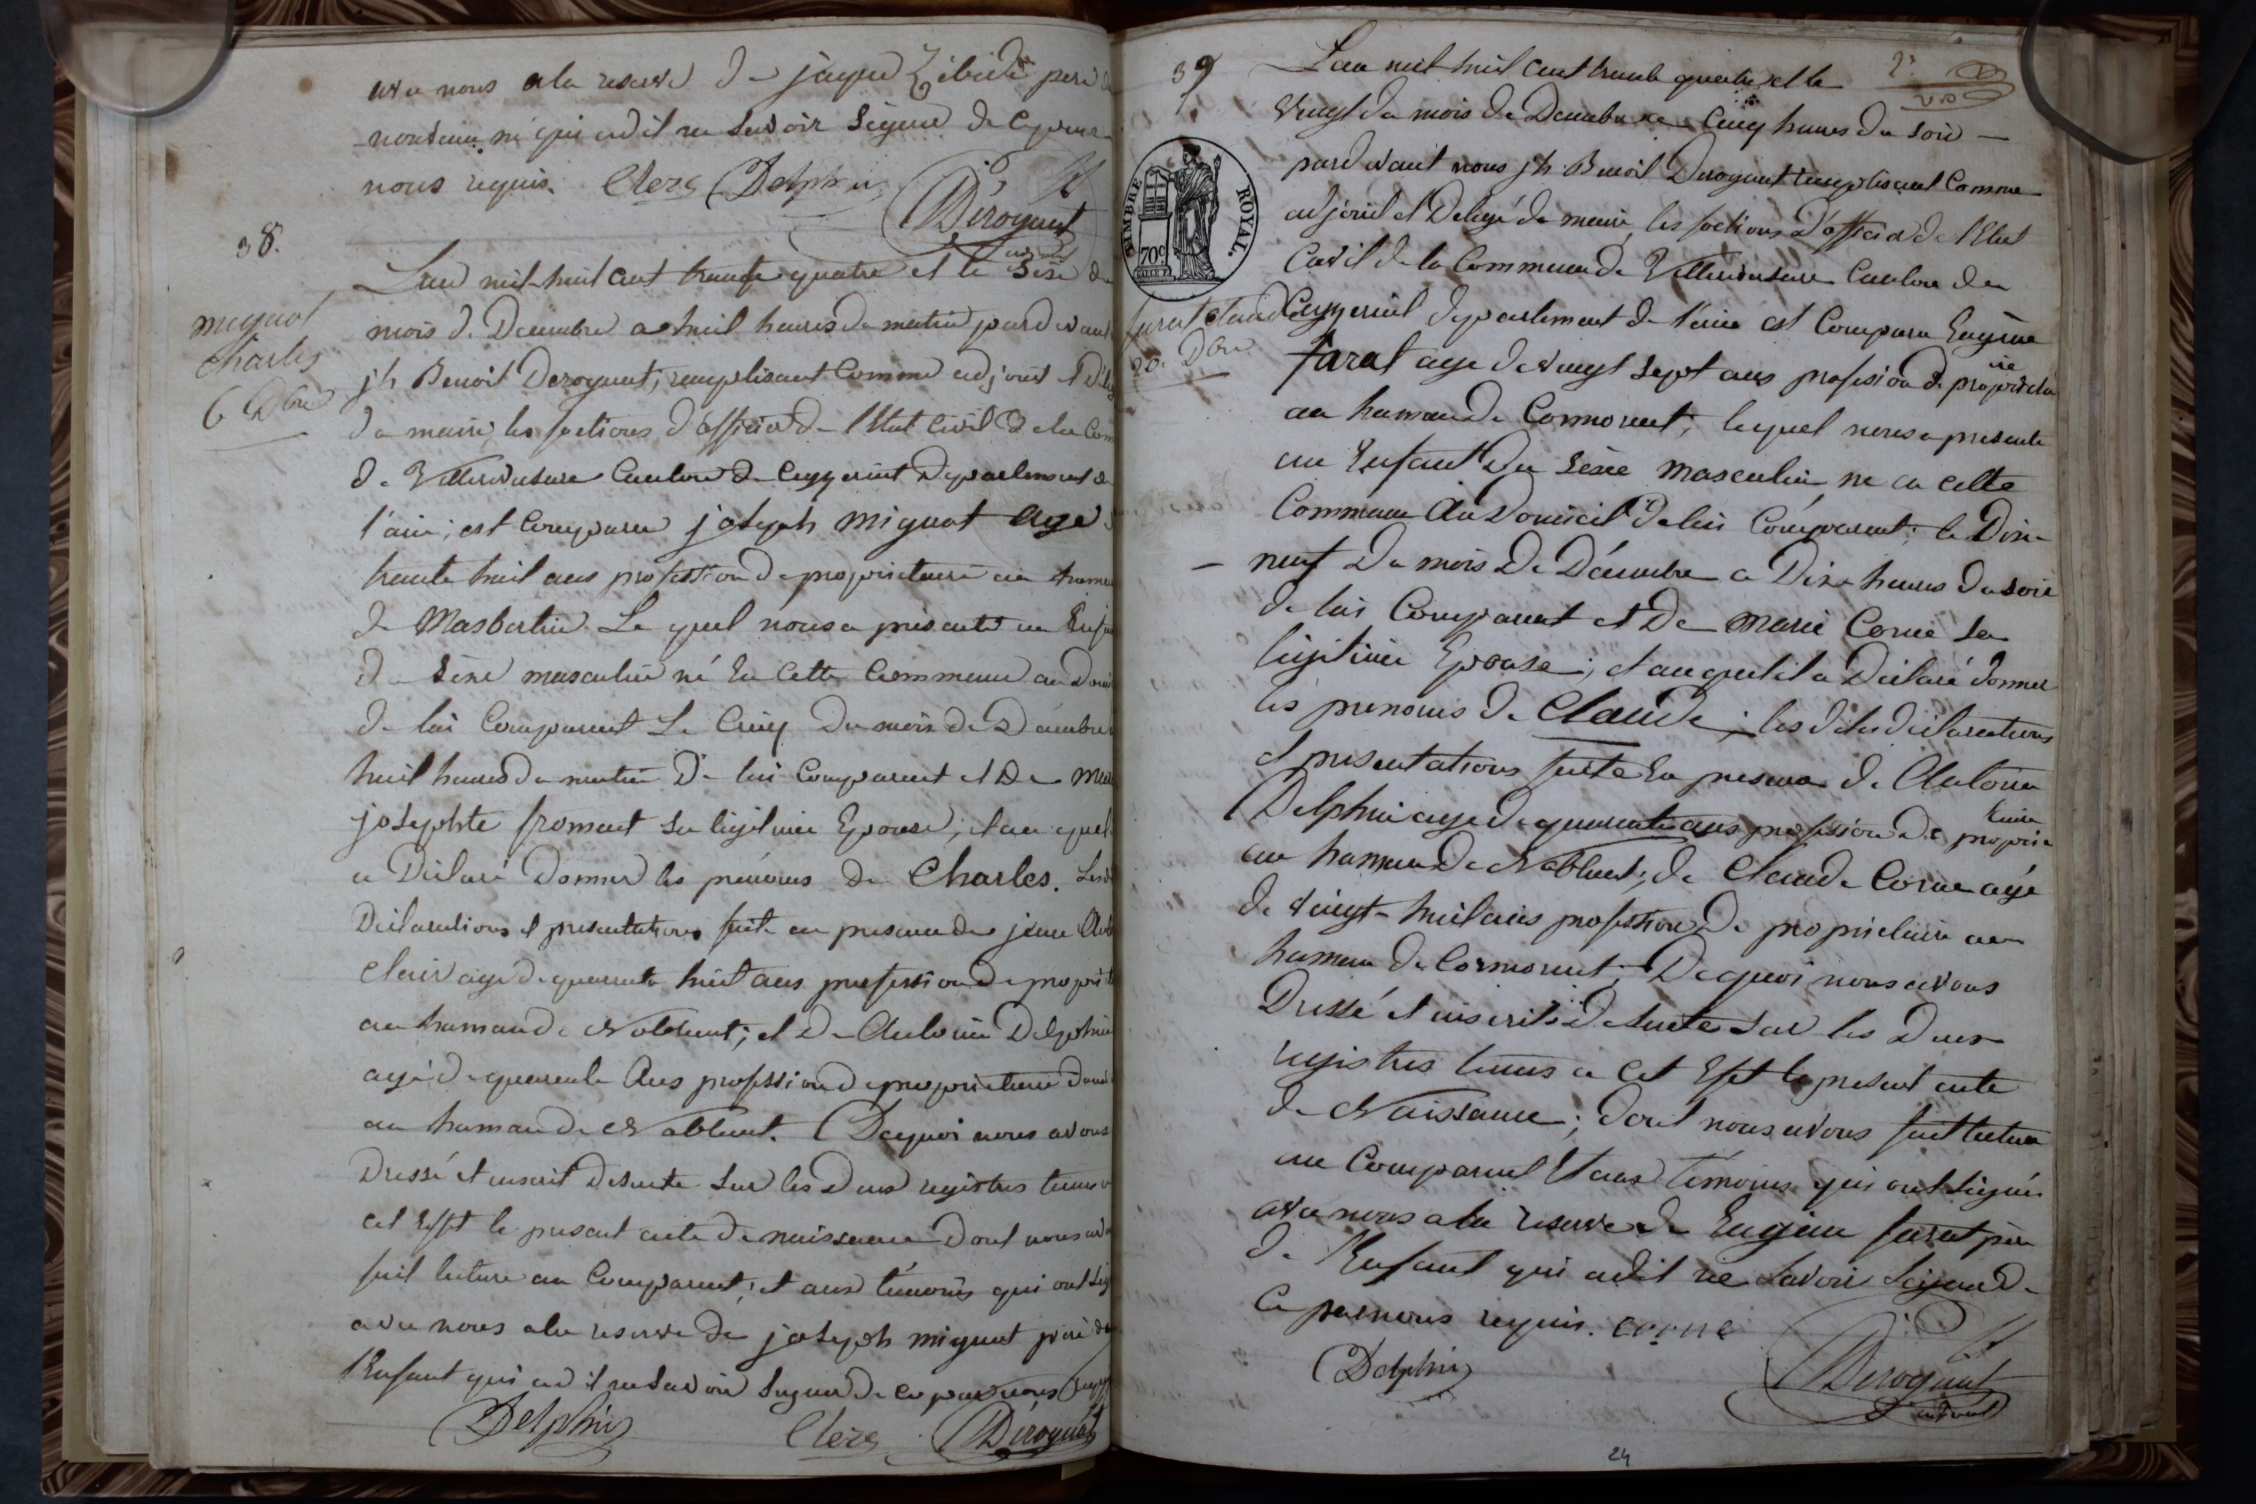 avec nous a la reserve de jaque Zébedé pere du
nouveau né qui a dit ne savoir signer de ce par
nous requis. Clerc Delphin Déroquat
38.
mignot
charles
6 Dbre
L'an mil huit cent trente quatre et le sixe du
mois de Decembre a huit heures du matin pardevant
jh Benoit Deroquat, remplisant comme adjoint et Délég
du maire les foctions d'officié de l'Etat civil de la Com
de Villereversure Canton de Ceyzeriat Departement de
l'ain; est comparu joseph mignot agé
trente huit ans profession de propriétaire au hamea
de Masbertin Le quel nous a présenté un Enfan
du sèxe masculin né En cette Commune au Domi
de lui Comparent Le Cinq du mois de Décembre
huit heures du matin De lui Comparent et De Mari
josephte froment sa légitime Epouse; et au quel
a Déclaré Donner les prénoms de Charles. Lesd
Déclarations et presentations fait en presence de jean
Clair agé de quarente huit ans profession de proprit
au hamau de Noblent; et De Antoine Delphin
agé de quarente Ans profession de propriétaire Dom
au hamau de Noblent. Dequoi nous avons
Dressé et inscrit Desuite sur les Deux registres tenus a
cet Effet le present acte de naissance Dont nous av
fait lecture au Comparent; et aux témoins qui ont sig
avec nous a la reserve de joseph mignot père de
l'Enfant qui a dit ne savoir signer de ce par nous requi
Delphin Clerc Déroquat
39
2e
TIMBRE ROYAL.
70c
farat claude
20. Dbre
L'an mil huit cent trente quatre et le
vingt du mois de Decembre a Cinq heures du soir
pardevant nous jh Benoit Deroquat remplisant comme
adjoint et Delegé du maire les foctions d'officié de l'Etat
Civil de la Commune de Villereversure Canton de
Ceyzeriat departement de l'ain est Comparu Eugène
farat age de vingt sept ans profession de propriétaire
au hameau de Cormorent; lequel nous a presenté
un Enfant Du sèxe masculin né en cette
Commune Au Domicil De lui Comparent; le Dix
neuf Du mois De Décembre a Dix heures Du soir
de lui Comparent et De Marie Corne sa
légitime Epouse; et auquel il a Déclaré donner
les prenoms de Claude; les dites déclarations
et presentations faite En presence de Antoine
Delphin age de quarente ans profession de propriétaire
au hameau de Noblent; de Claude Corne agé
de vingt-huit ans profession de propriétaire au
hameau de Cormorent; Dequoi nous avons
Dressé et inscrits de suite sur les Deux
registres tenus a cet Effet le present acte
de Naissance; dont nous avons fait lecture
au Comparent Et aux témoins qui ont signés
avec nous a la reserve de Eugène farat père
de l'Enfant qui a dit ne savoir signer de
ce par nous requis. corne
Delphin Déroquat
24